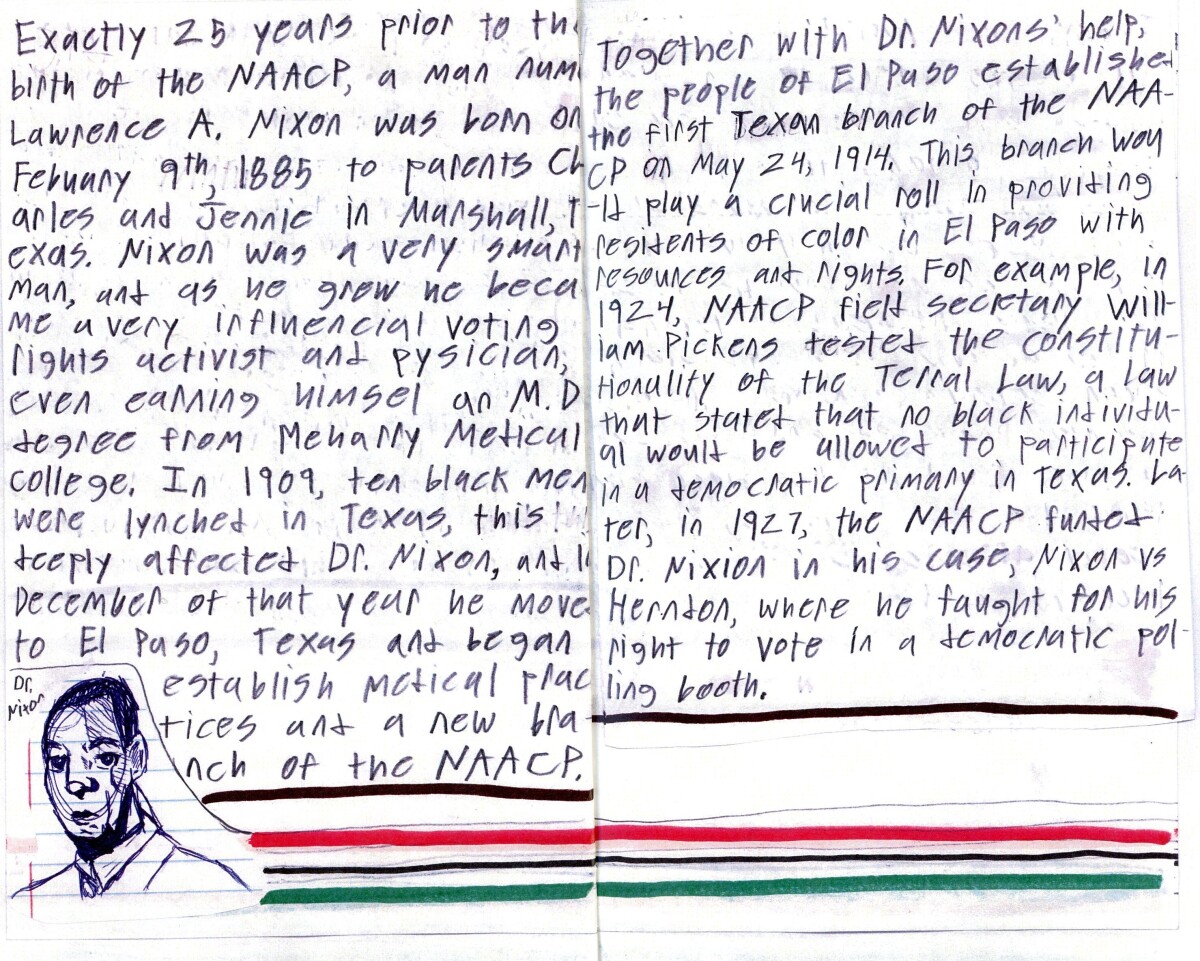 Exactly 25 years prior to the
birth of the NAACP, a man name
Lawrence A. Nixon was born on
Febuary 9th, 1885 to parents Ch
arles and Jennie in Marshall, T
exas. Nixon was a very smart
man, and as he grew he beca
me a very influencial voting
rights activist and pysician,
even earning himsel an M.D
degree from Meharry Medical
college. In 1909, ten black men
were lynched in Texas, this
deeply affected Dr. Nixon, and in
December of that year he move
to El Paso, Texas and began
establish medical prac
tices and a new bra-
nch of the NAACP.
Dr.
Nixon
Together with Dr. Nixons' help,
the people of El Paso established
the first Texan branch of the NAA-
CP on May 24, 1914. This branch wou
-ld play a crucial roll in providing
residents of color in El Paso with
resources and rights. For example, in
1924, NAACP field secretary Will-
iam Pickens tested the constitu-
tionality of the Terral Law, a law
that stated that no black individu-
al would be allowed to participate
in a democratic primary in Texas. La-
ter, in 1927, the NAACP funded
Dr. Nixion in his case, Nixon vs
Herndon, where he faught for his
right to vote in a democratic pol-
ling booth.